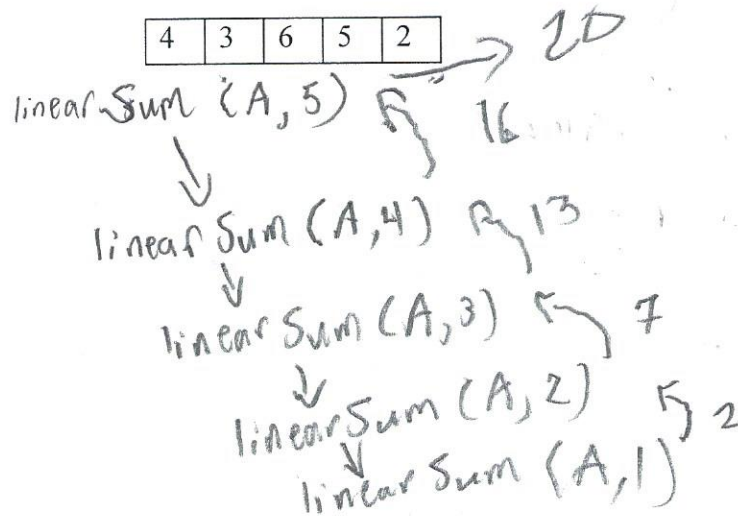 4 3 6 5 2
20
linearSum (A, 5)
16
linearSum (A, 4)
13
linearSum (A, 3)
7
linearSum (A, 2)
2
linearSum (A, 1)